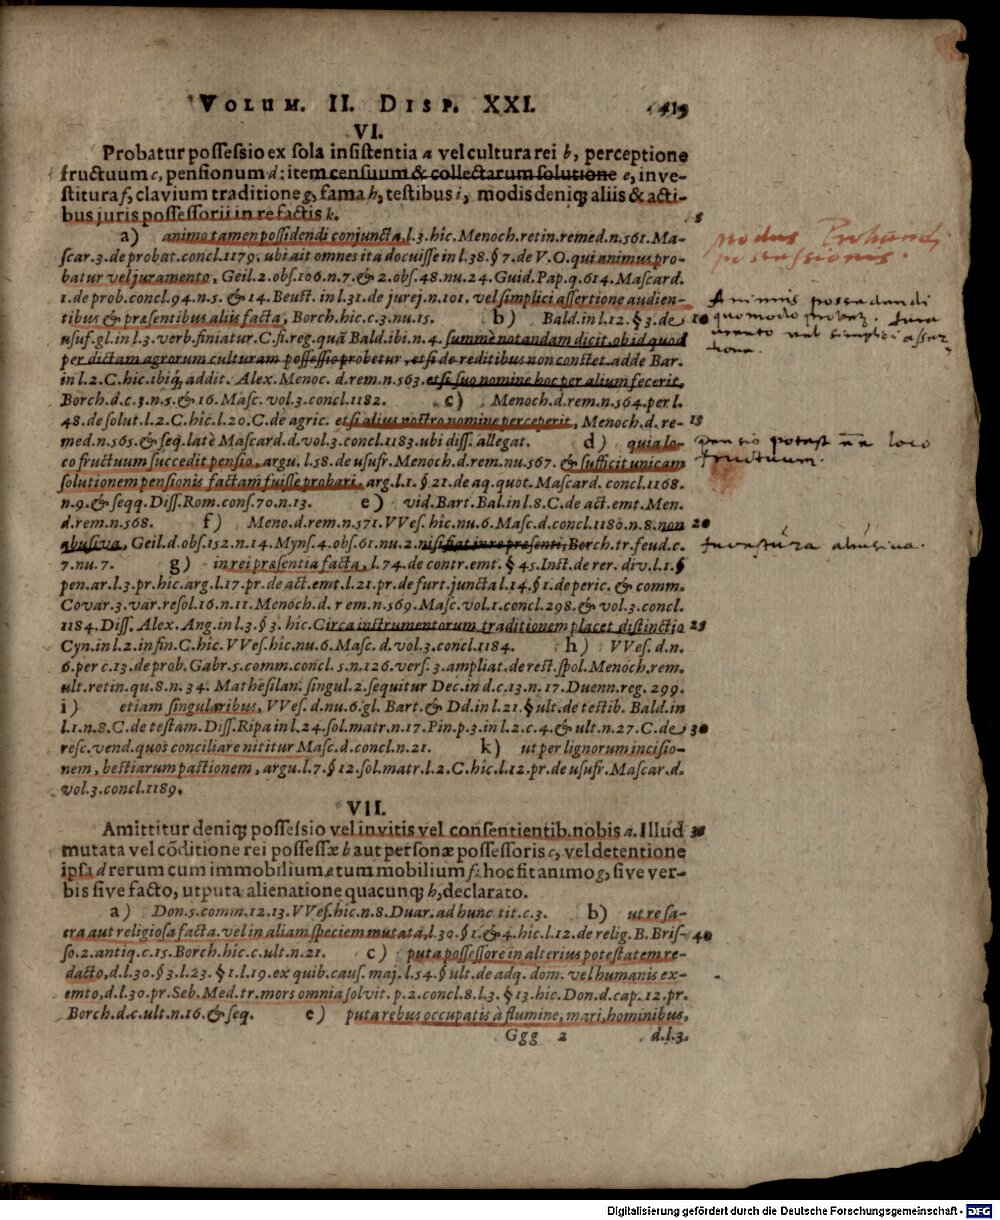 VOLUM. II. DISP. XXI. 419
VI.
Probatur possessio ex sola insistentia a vel cultura rei b, perceptione
fructuum c, pensionum d: item censuum & collectarum solutione e, inve-
stitura f, clavium traditione g, fama h, testibus i, modis deniq; aliis & acti-
bus juris possessorii in re factis k. 5
a) animo tamen possidendi conjuncta, l. 3. hîc. Menoch. retin. remed. n. 561. Ma-
scar. 3. de probat. concl. 1179. ubi ait omnes ita docuisse in l. 38. § 7. de V. O. qui animus pro-
batur vel juramento, Geil. 2. obs. 106. n. 7. & 2. obs. 48. nu. 24. Guid. Pap. q. 614. Mascard.
1. de prob. concl. 94. n. 5. & 14. Beust. in l. 31. de jurej. n. 101. vel simplici assertione audien-
tibus & præsentibus aliis facta, Borch. hîc. c. 3. nu. 15. b) Bald. in l. 12. § 3. de 10
usuf. gl. in l. 3. verb. finiatur. C. si. reg. quã Bald. ibi. n. 4. summè notandam dicit, ob id quod
per dictam agrorum culturam possessio probetur, etsi de reditibus non constet. adde Bar.
in l. 2. C. hîc. ibiq; addit. Alex. Menoc. d. rem. n. 563. etsi suo nomine hoc per alium fecerit,
Borch. d. c. 3. n. 5. & 16. Masc. vol. 3. concl. 1182. c) Menoch. d. rem. n. 564. per l.
48. de solut. l. 2. C. hîc. l. 20. C. de agric. etsi alius nostro nomine perceperit, Menoch. d. re- 15
med. n. 565. & seq. latè Mascard. d. vol. 3. concl. 1183. ubi diss. allegat. d) quia lo-
co fructuum succedit pensio, argu. l. 58. de usufr. Menoch. d. rem. nu. 567. & sufficit unicam
solutionem pensionis factam fuisse probari, arg. l. 1. § 21. de aq. quot. Mascard. concl. 1168.
n. 9. & seqq. Diss. Rom. cons. 70. n. 13. e) vid. Bart. Bal. in l. 8. C. de act. emt. Men.
d. rem. n. 568. f) Meno. d. rem. n. 571. VVes. hîc. nu. 6. Masc. d. concl. 1180. n. 8. non 20
abusiva, Geil. d. obs. 152. n. 14. Myns. 4. obs. 61. nu. 2. nisi fiat in re præsenti, Borch. tr. feud. c.
7. nu. 7. g) in rei præsentia facta, l. 74. de contr. emt. § 45. Inst. de rer. div. l. 1. §
pen. ar. l. 3. pr. hîc. arg. l. 17. pr. de act. emt. l. 21. pr. de furt. juncta l. 14. § 1. de peric. & comm.
Covar. 3. var. resol. 16. n. 11. Menoch. d. rem. n. 569. Masc. vol. 1. concl. 298. & vol. 3. concl.
1184. Diss. Alex. Ang. in l. 3. § 3. hîc. Circa instrumentorum traditionem placet distinctio 25
Cyn. in l. 2. in fin. C. hîc. VVes. hîc. nu. 6. Masc. d. vol. 3. concl. 1184. h) VVes. d. n.
6. per c. 13. de prob. Gabr. 5. comm. concl. 5. n. 126. vers. 3. ampliat. de rest. spol. Menoch. rem.
ult. retin. qu. 8. n. 34. Mathesilan. singul. 2. sequitur Dec. in d. c. 13. n. 17. Duenn. reg. 299.
i) etiam singularibus, VVes. d. nu. 6. gl. Bart. & Dd. in l. 21. § ult. de testib. Bald. in
l. 1. n. 8. C. de testam. Diss. Ripa in l. 24. sol. matr. n. 17. Pin. p. 3. in l. 2. c. 4. & ult. n. 27. C. de 30
resc. vend. quos conciliare nititur Masc. d. concl. n. 21. k) ut per lignorum incisio-
nem, bestiarum pastionem, argu. l. 7. § 12. sol. matr. l. 2. C. hîc. l. 12. pr. de usufr. Mascar. d.
vol. 3. concl. 1189.
VII.
Amittitur deniq; possessio vel invitis vel consentientib. nobis a. Illud 35
mutata vel cõditione rei possessæ b aut personæ possessoris c, vel detentione
ipsa d rerum cum immobilium e tum mobilium f: hoc fit animo g, sive ver-
bis sive facto, utputa alienatione quacunq; h, declarato.
a) Don. 5. comm. 12. 13. VVes. hîc. n. 8. Duar. ad hunc tit. c. 3. b) ut re sa-
cra aut religiosa facta. vel in aliam speciem mutatâ, l. 30. § 1. & 4. hîc. l. 12. de relig. B. Bris- 40
so. 2. antiq. c. 15. Borch. hîc. c. ult. n. 21. c) puta possessore in alterius potestatem re-
dacto, d. l. 30. § 3. l. 23. § 1. l. 19. ex quib. caus. maj. l. 54. § ult. de adq. dom. vel humanis ex-
emto, d. l. 30. pr. Seb. Med. tr. mors omnia solvit. p. 2. concl. 8. l. 3. § 13. hîc. Don. d. cap. 12. pr.
Borch. d. c. ult. n. 16. & seq. e) puta rebus occupatis à flumine, mari, hominibus,
Ggg 2 d. l. 3.
modus Probandi
possessionis.
Animus possidendi
quomodo probetur. Jura
mento vel simplici asser
tione.
pensio potest loco
fructuum.
Investitura abusiva.
Digitalisierung gefördert durch die Deutsche Forschungsgemeinschaft - DFG